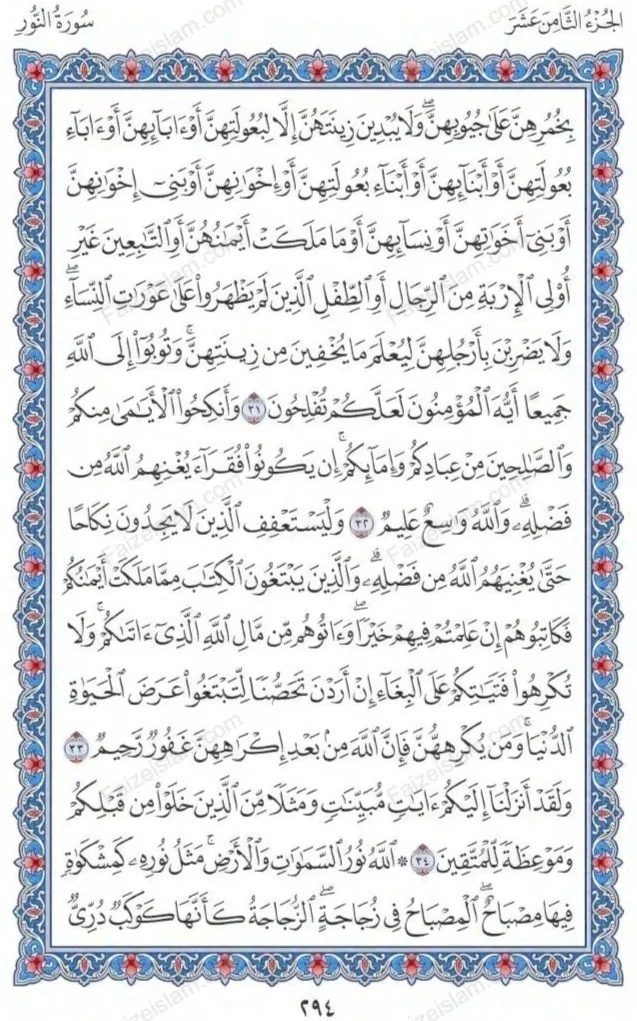 الجُزْءُ الثَّامِنَ عَشَرَ
سُورَةُ النُّورِ
بِخُمُرِهِنَّ عَلَىٰ جُيُوبِهِنَّۖ وَلَا يُبْدِينَ زِينَتَهُنَّ إِلَّا لِبُعُولَتِهِنَّ أَوْ ءَابَآئِهِنَّ أَوْ ءَابَآءِ
بُعُولَتِهِنَّ أَوْ أَبْنَآئِهِنَّ أَوْ أَبْنَآءِ بُعُولَتِهِنَّ أَوْ إِخْوَٰنِهِنَّ أَوْ بَنِىٓ إِخْوَٰنِهِنَّ
أَوْ بَنِىٓ أَخَوَٰتِهِنَّ أَوْ نِسَآئِهِنَّ أَوْ مَا مَلَكَتْ أَيْمَٰنُهُنَّ أَوِ ٱلتَّٰبِعِينَ غَيْرِ
أُو۟لِى ٱلْإِرْبَةِ مِنَ ٱلرِّجَالِ أَوِ ٱلطِّفْلِ ٱلَّذِينَ لَمْ يَظْهَرُوا۟ عَلَىٰ عَوْرَٰتِ ٱلنِّسَآءِۖ
وَلَا يَضْرِبْنَ بِأَرْجُلِهِنَّ لِيُعْلَمَ مَا يُخْفِينَ مِن زِينَتِهِنَّۚ وَتُوبُوٓا۟ إِلَى ٱللَّهِ
جَمِيعًا أَيُّهَ ٱلْمُؤْمِنُونَ لَعَلَّكُمْ تُفْلِحُونَ ٣١ وَأَنكِحُوا۟ ٱلْأَيَٰمَىٰ مِنكُمْ
وَٱلصَّٰلِحِينَ مِنْ عِبَادِكُمْ وَإِمَآئِكُمْۚ إِن يَكُونُوا۟ فُقَرَآءَ يُغْنِهِمُ ٱللَّهُ مِن
فَضْلِهِۦۗ وَٱللَّهُ وَٰسِعٌ عَلِيمٌ ٣٢ وَلْيَسْتَعْفِفِ ٱلَّذِينَ لَا يَجِدُونَ نِكَاحًا
حَتَّىٰ يُغْنِيَهُمُ ٱللَّهُ مِن فَضْلِهِۦۗ وَٱلَّذِينَ يَبْتَغُونَ ٱلْكِتَٰبَ مِمَّا مَلَكَتْ أَيْمَٰنُكُمْ
فَكَاتِبُوهُمْ إِنْ عَلِمْتُمْ فِيهِمْ خَيْرًاۖ وَءَاتُوهُم مِّن مَّالِ ٱللَّهِ ٱلَّذِىٓ ءَاتَىٰكُمْۚ وَلَا
تُكْرِهُوا۟ فَتَيَٰتِكُمْ عَلَى ٱلْبِغَآءِ إِنْ أَرَدْنَ تَحَصُّنًا لِّتَبْتَغُوا۟ عَرَضَ ٱلْحَيَوٰةِ
ٱلدُّنْيَاۚ وَمَن يُكْرِههُّنَّ فَإِنَّ ٱللَّهَ مِنۢ بَعْدِ إِكْرَٰهِهِنَّ غَفُورٌ رَّحِيمٌ ٣٣
وَلَقَدْ أَنزَلْنَآ إِلَيْكُمْ ءَايَٰتٍ مُّبَيِّنَٰتٍ وَمَثَلًا مِّنَ ٱلَّذِينَ خَلَوْا۟ مِن قَبْلِكُمْ
وَمَوْعِظَةً لِّلْمُتَّقِينَ ٣٤ ۞ ٱللَّهُ نُورُ ٱلسَّمَٰوَٰتِ وَٱلْأَرْضِۚ مَثَلُ نُورِهِۦ كَمِشْكَوٰةٍ
فِيهَا مِصْبَاحٌۖ ٱلْمِصْبَاحُ فِى زُجَاجَةٍۖ ٱلزُّجَاجَةُ كَأَنَّهَا كَوْكَبٌ دُرِّىٌّ
٢٩٤
Faizeislam.com